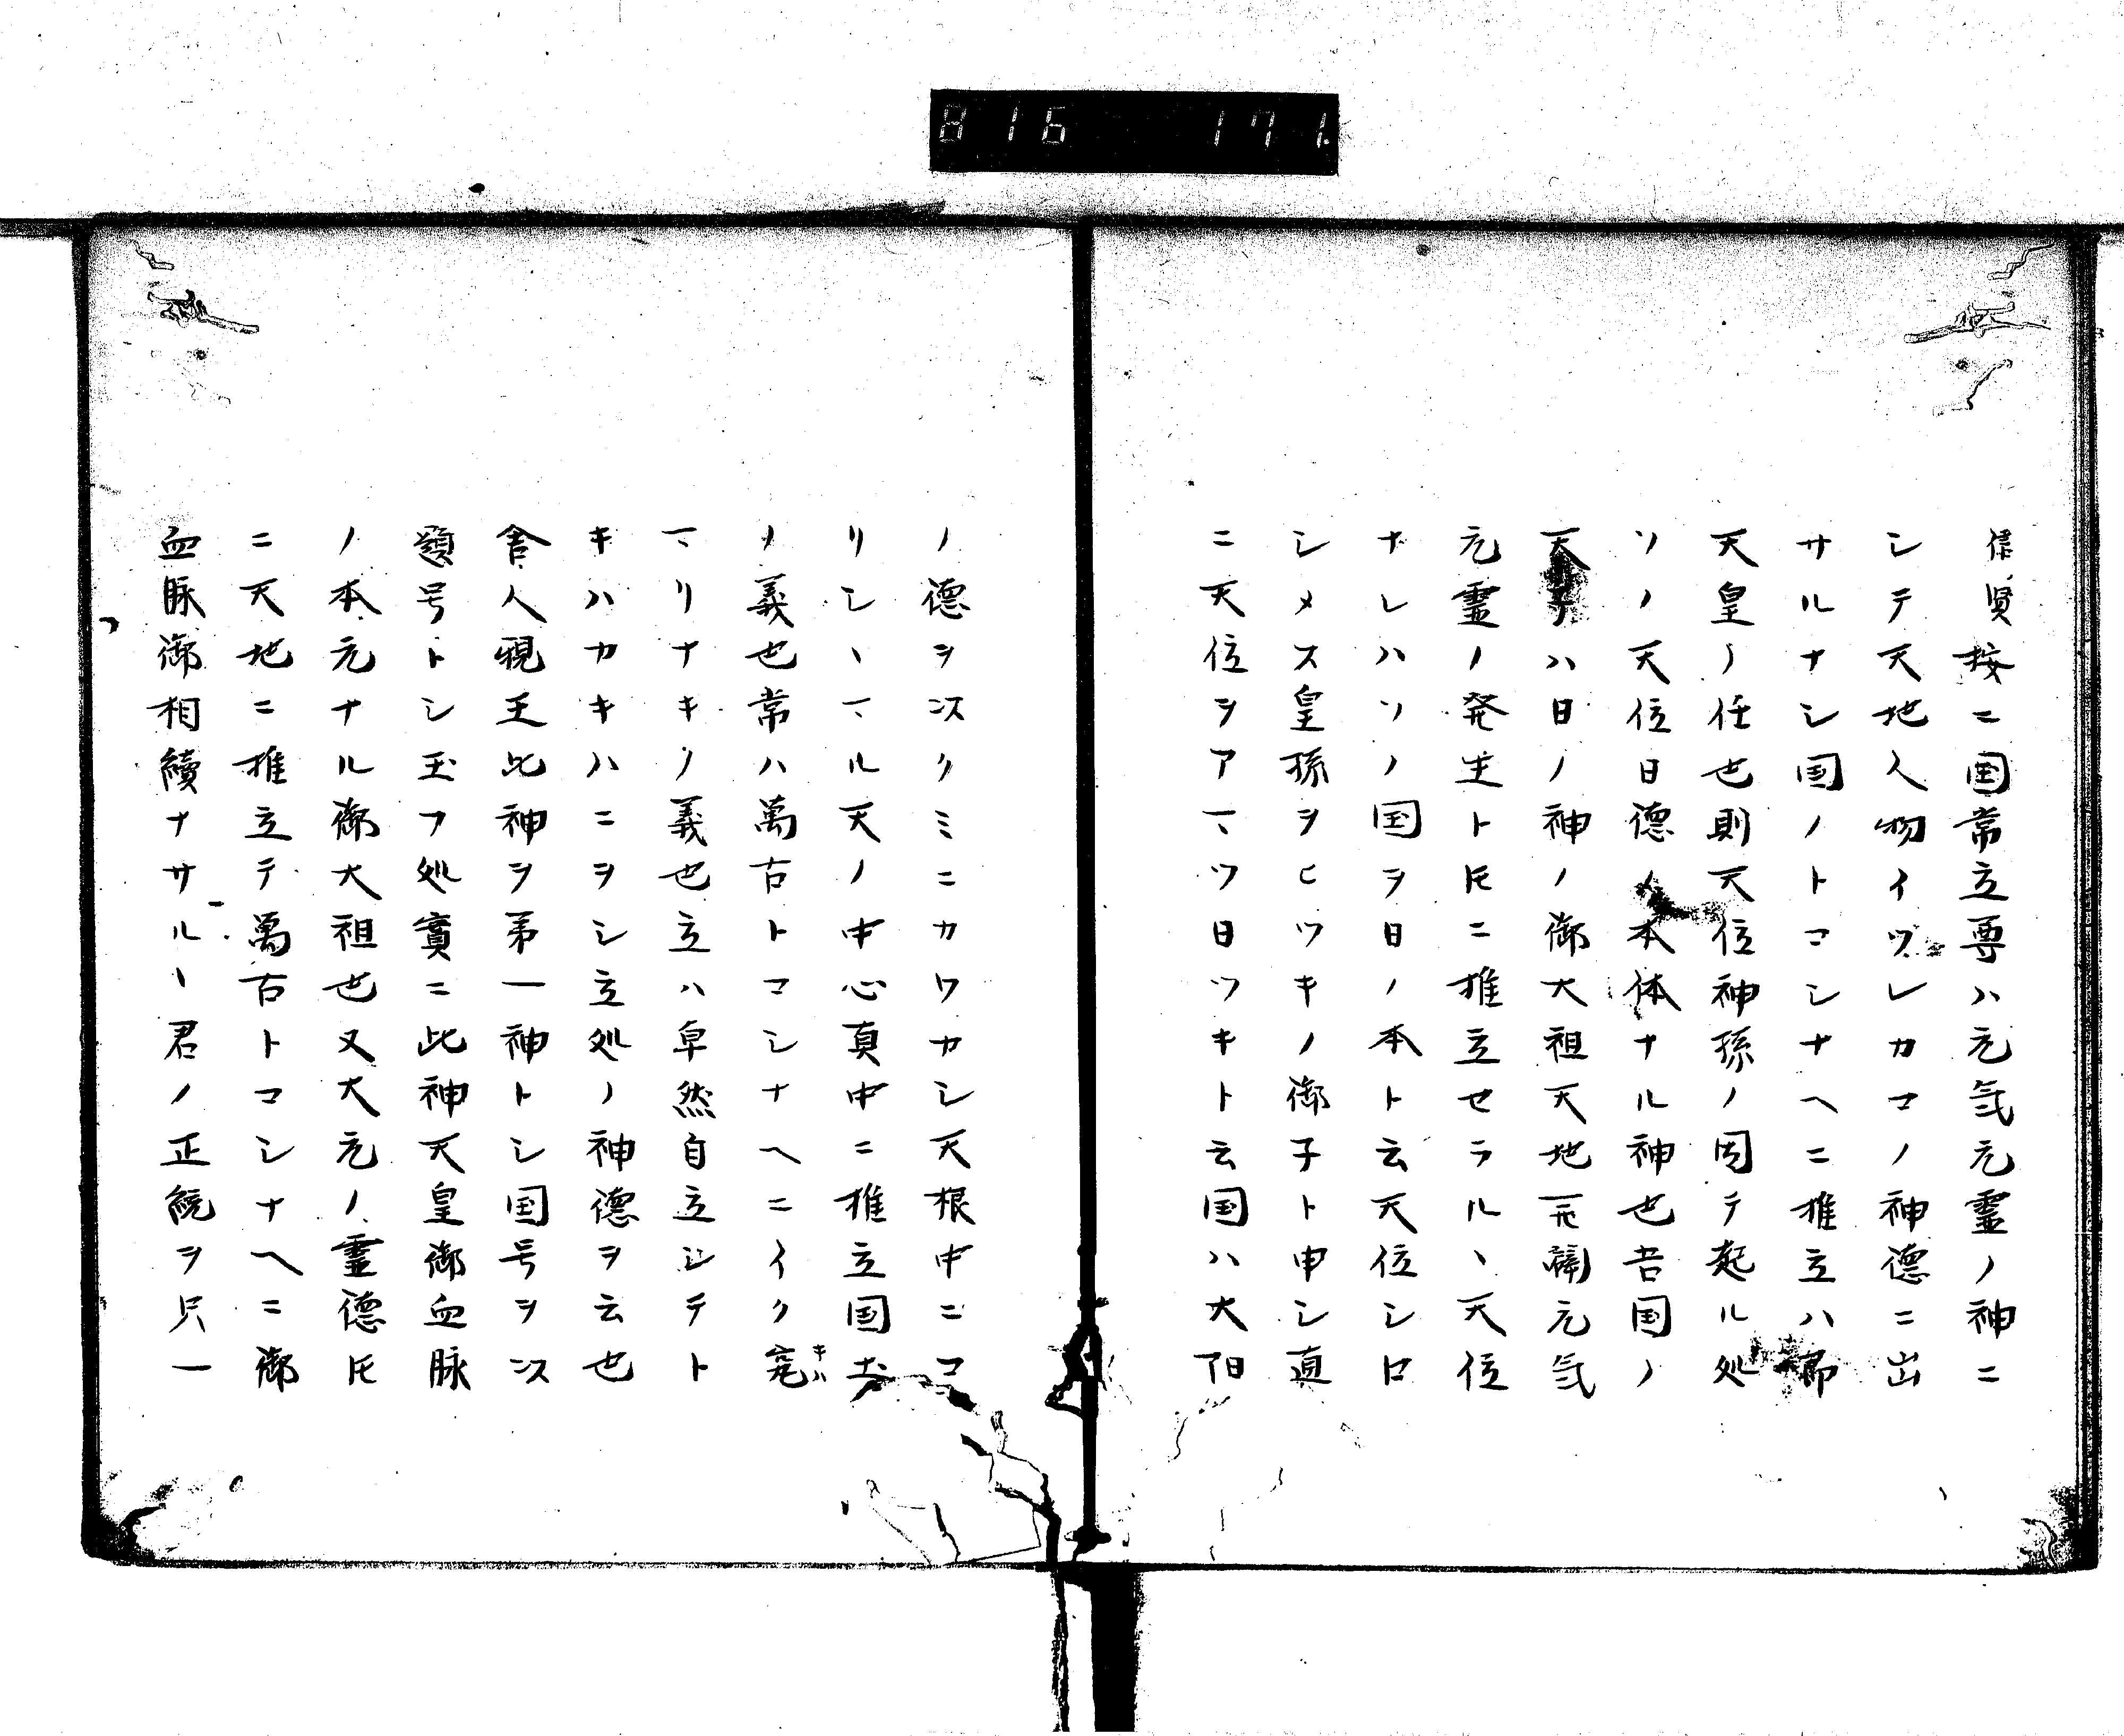 816 171
信賢按ニ国常立尊ハ元気元霊ノ神ニ
シテ天地人物イツレカコノ神徳ニ出
サルナシ国ノトコシナヘニ推立ハ即
天皇ノ任也則天位神孫ノ因テ起ル処
ソノ天位日徳ノ本体ナル神也吾国ノ
天子ハ日ノ神ノ御大祖天地一元開闢元気
元霊ノ発生トモニ推立セラルヽ天位
ナレハソノ国ヲ日ノ本ト云天位シロ
シメス皇孫ヲヒツキノ御子ト申シ直
ニ天位ヲアマツ日ツキト云国ハ大陽
ノ徳ヲ次クミニカワカシ天根中ニコ
リシヽマル天ノ中心真中ニ推立国土
ノ義也常ハ萬古トコシナヘニイク究キハ
マリナキノ義也立ハ卓然自立シテト
キハカキハニヲシ立処ノ神徳ヲ云也
舎人親王此神ヲ第一神トシ国号ヲ次
題号トシ玉フ処實ニ此神天皇御血脉
ノ本元ナル御大祖也又大元ノ霊徳モ
ニ天地ニ推立テ萬古トコシナヘニ御
血脉御相續ナサルヽ君ノ正統ヲ只一